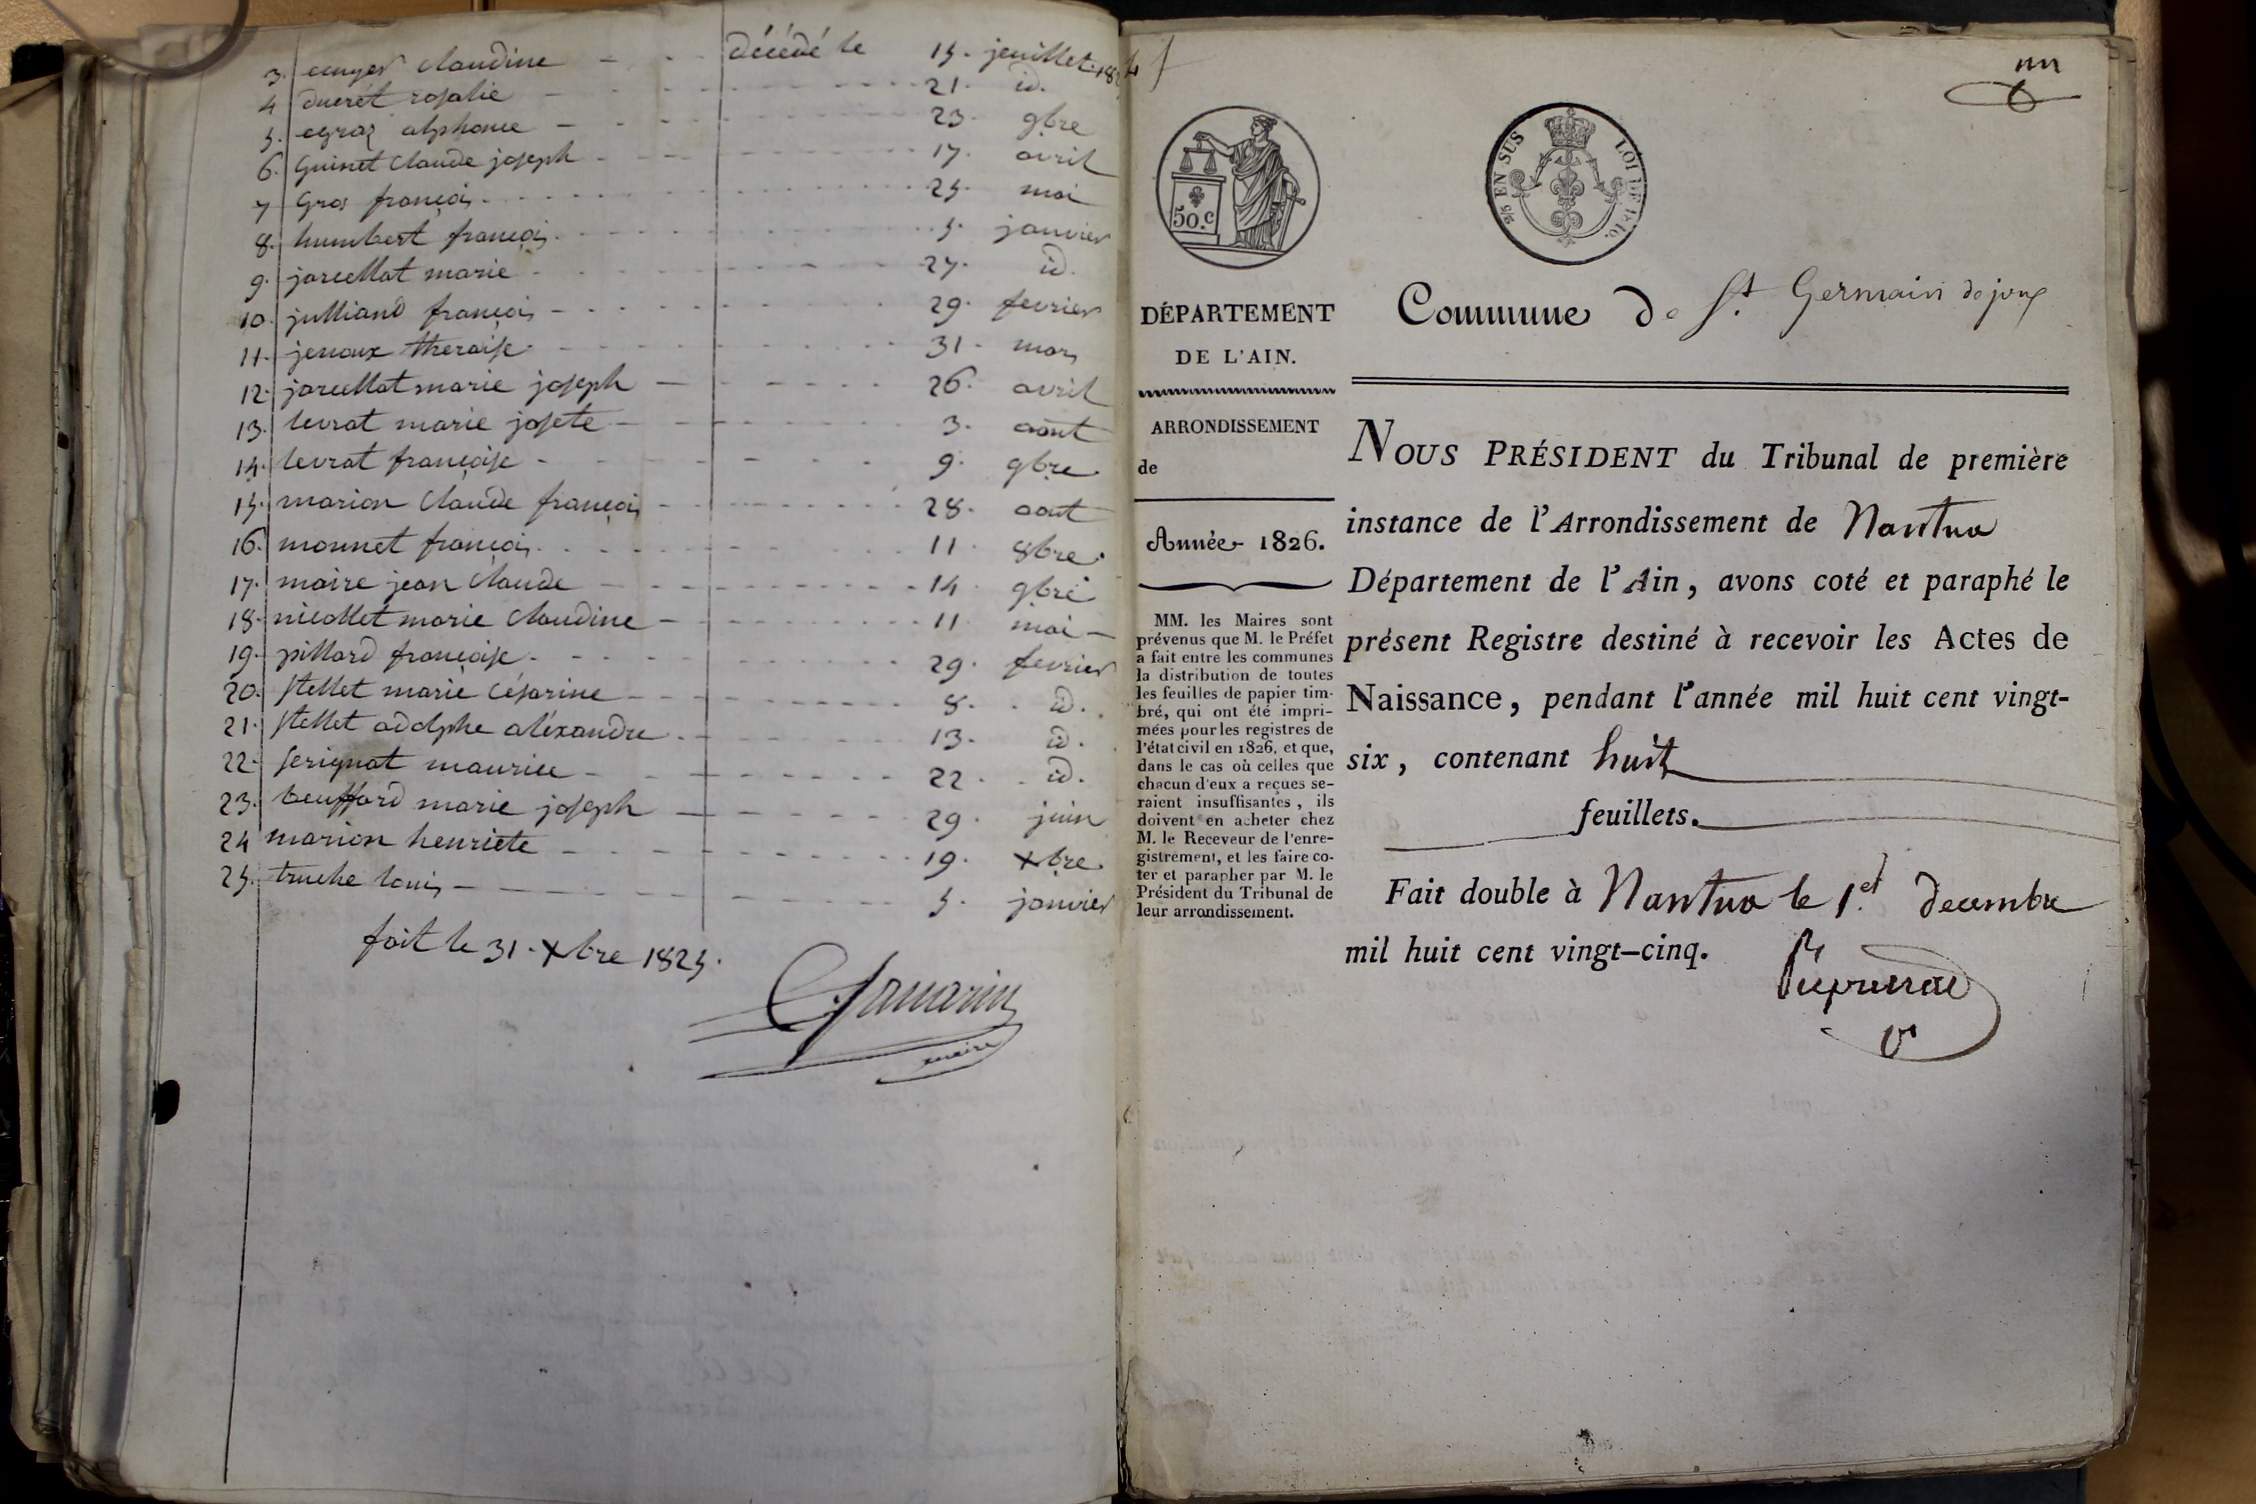 3. cuyer claudine - - décédé le 15. jeuillet. 18
4 ducrét rosalie - 21. id.
5. egraz alphonce - 23. 9bre
6. Guinet claude joseph - 17. avril
7 Gros françois. 25. mai
8. humbert françois. 5. janvier
9. jarcellat marie - 27. id.
10. julliand françois - 29. fevrier
11. jenoux theraise. 31. mars
12. jarcellat marie joseph - 26. avril
13. levrat marie josete - 3. aout
14. levrat françoise - 9. 9bre.
15. marion claude françois - 28. aout
16. monnet françois. 11. 8bre.
17. maire jean claude - 14. 9bre
18. nicollet marie claudine - 11. mai -
19. pillard françoise. 29. fevrier
20. stellet marie césarine - 8. id.
21. stellet adolphe aléxandre. 13. id.
22. serignat maurice - 22. id.
23. beufford marie joseph - 29. juin
24 marion henriete - 19. xbre.
25. truche louis - 5. janvier
fait le 31. xbre 1825.
maire
50.c
2/5 EN SUS LOI DE 1816.
Commune de St. Germain de joux
DÉPARTEMENT
DE L'AIN.
ARRONDISSEMENT
de
Année 1826.
MM. les Maires sont
prévenus que M. le Préfet
a fait entre les communes
la distribution de toutes
les feuilles de papier tim-
bré, qui ont été impri-
mées pour les registres de
l'état civil en 1826, et que,
dans le cas où celles que
chacun d'eux a reçues se-
raient insuffisantes, ils
doivent en acheter chez
M. le Receveur de l'enre-
gistrement, et les faire co-
ter et parapher par M. le
Président du Tribunal de
leur arrondissement.
NOUS PRÉSIDENT du Tribunal de première
instance de l'Arrondissement de Nantua
Département de l'Ain, avons coté et paraphé le
présent Registre destiné à recevoir les Actes de
Naissance, pendant l'année mil huit cent vingt-
six, contenant huit
feuillets.
Fait double à Nantua le 1er decembre
mil huit cent vingt-cinq.